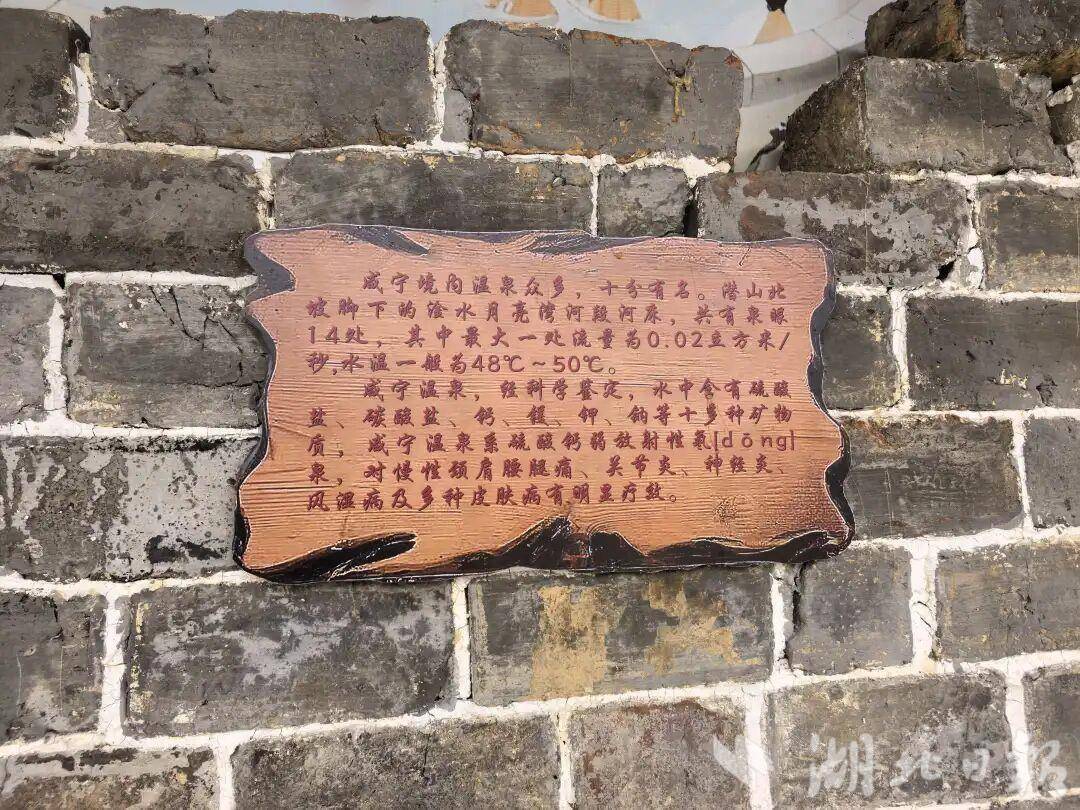 咸宁境内温泉众多，十分有名。潜山北
坡脚下的淦水月亮湾河段河床，共有泉眼
14处，其中最大一处流量为0.02立方米/
秒,水温一般为48℃～50℃。
咸宁温泉，经科学鉴定，水中含有硫酸
盐、碳酸盐、钙、镁、钾、钠等十多种矿物
质，咸宁温泉系硫酸钙弱放射性氡[dōng]
泉，对慢性颈肩腰腿痛、关节炎、神经炎、
风湿病及多种皮肤病有明显疗效。
湖北日报